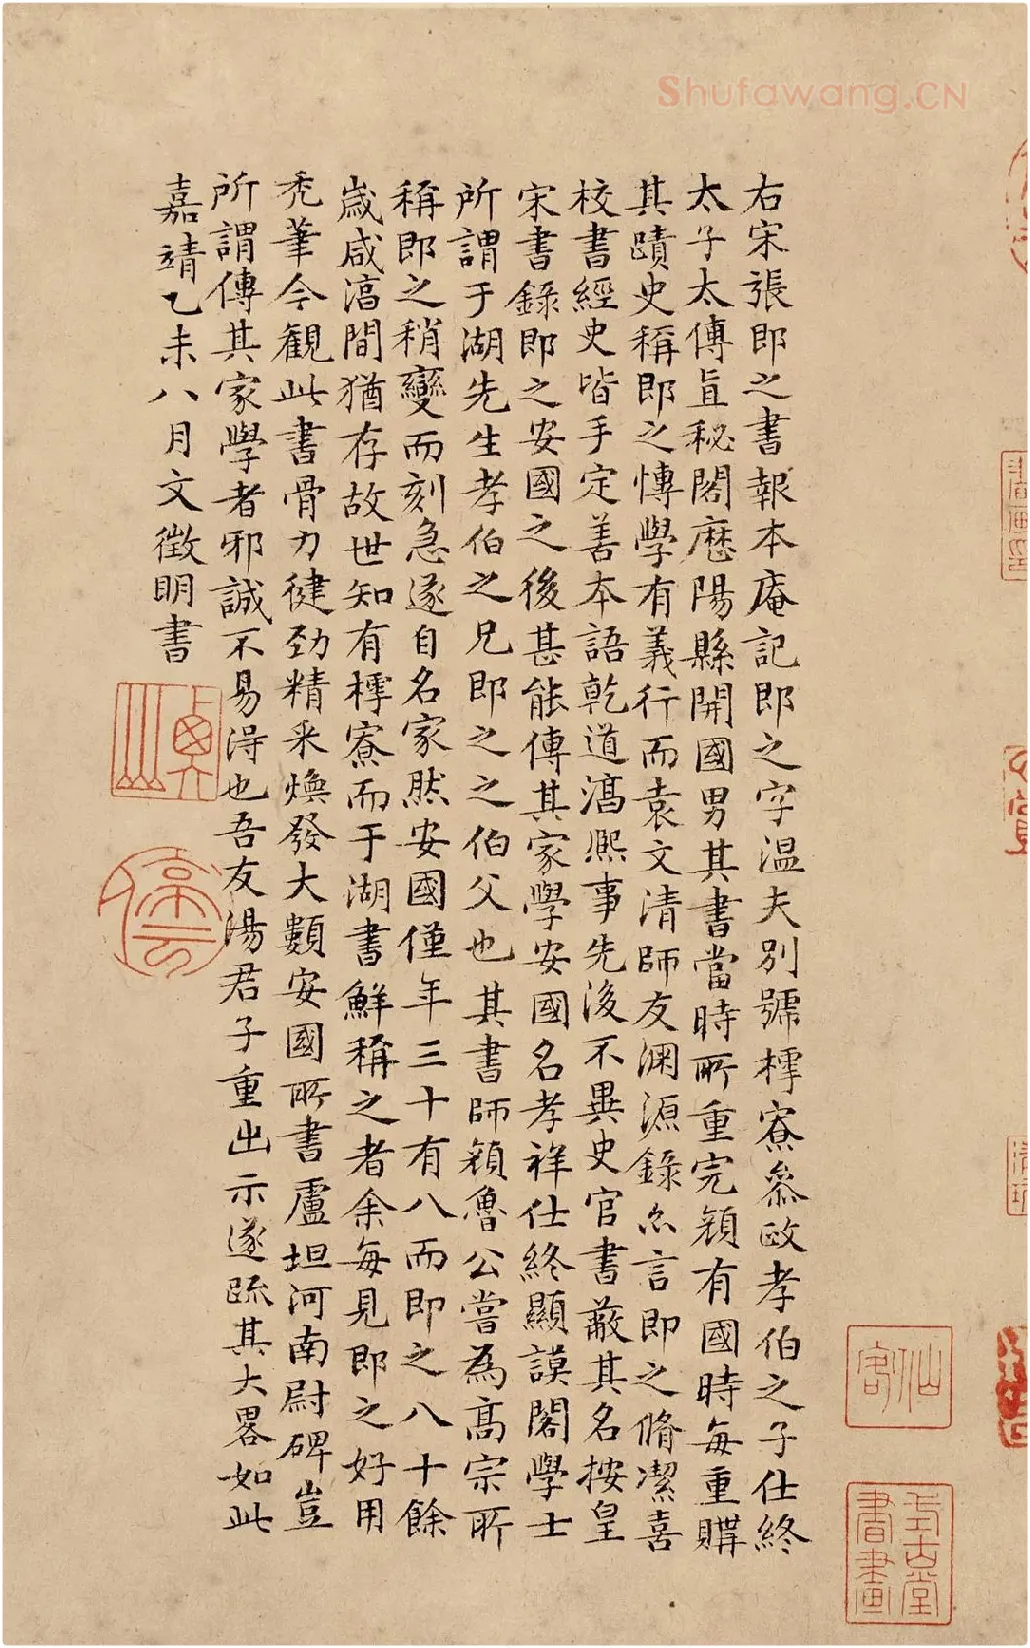 Shufawang.CN
右宋張即之書報本庵記即之字温夫別號樗寮叅政孝伯之子仕終
太子太傅直秘閣歷陽縣開國男其書當時所重完顏有國時每重購
其蹟史稱即之愽學有義行而袁文清師友渊源錄亦言即之脩潔喜
校書經史皆手定善本語乾道淳熈事先後不異史官書蔽其名按皇
宋書錄即之安國之後甚能傳其家學安國名孝祥仕終顯謨閣學士
所謂于湖先生孝伯之兄即之之伯父也其書師顏魯公嘗為高宗所
稱即之稍變而刻急遂自名家然安國僅年三十有八而即之八十餘
歲咸淳間猶存故世知有樗寮而于湖書鮮稱之者余每見即之好用
秃筆今觀此書骨力健勁精采煥發大類安國所書盧坦河南尉碑豈
所謂傳其家學者邪誠不易得也吾友湯君子重出示遂疏其大畧如此
嘉靖乙未八月文徵明書
停雲
仙客